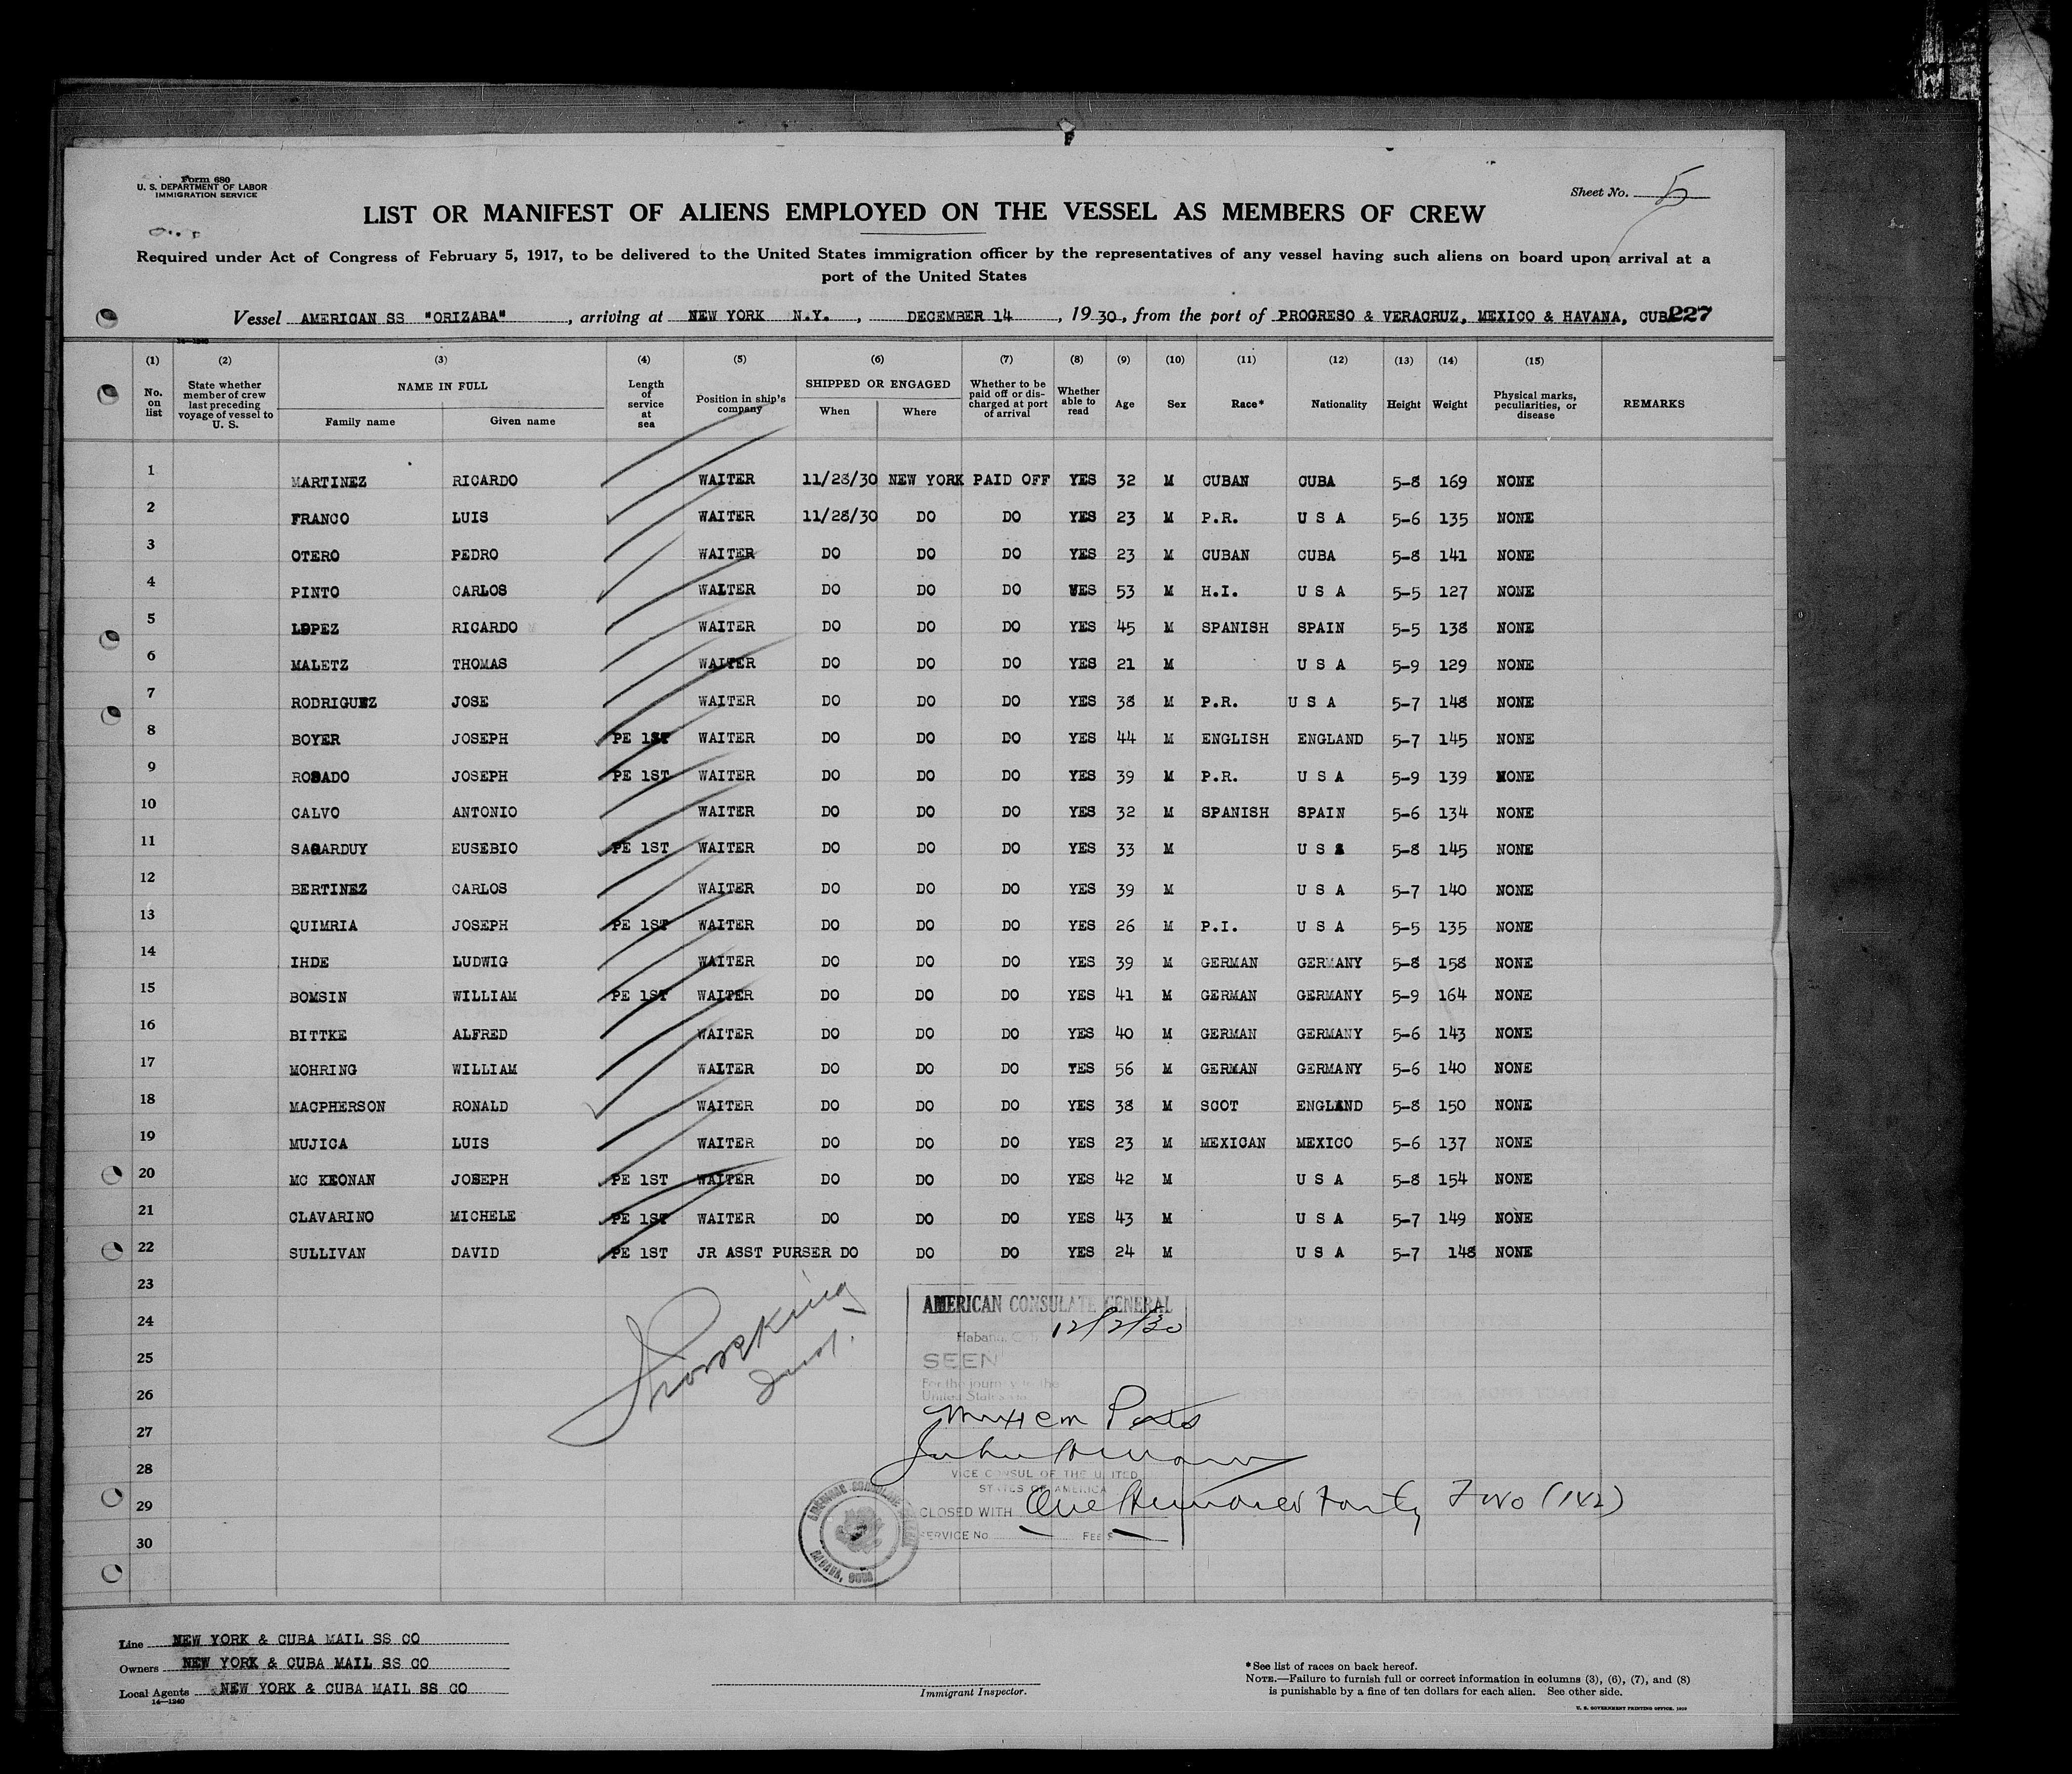 Form 680
U. S. DEPARTMENT OF LABOR
IMMIGRATION SERVICE
Sheet No. 5
LIST OR MANIFEST OF ALIENS EMPLOYED ON THE VESSEL AS MEMBERS OF CREW
Required under Act of Congress of February 5, 1917, to be delivered to the United States immigration officer by the representatives of any vessel having such aliens on board upon arrival at a
port of the United States
Vessel AMERICAN SS "ORIZABA", arriving at NEW YORK N.Y., DECEMBER 14, 1930, from the port of PROGRESO & VERACRUZ, MEXICO & HAVANA, CUBA 227
(1) (2) (3) (4) (5) (6) (7) (8) (9) (10) (11) (12) (13) (14) (15)
No. on list State whether member of crew last preceding voyage of vessel to U. S. NAME IN FULL Family name Given name Length of service at sea Position in ship's company SHIPPED OR ENGAGED When Where Whether to be paid off or discharged at port of arrival Whether able to read Age Sex Race* Nationality Height Weight Physical marks, peculiarities, or disease REMARKS
1 MARTINEZ RICARDO WAITER 11/28/30 NEW YORK PAID OFF YES 32 M CUBAN CUBA 5-8 169 NONE
2 FRANCO LUIS WAITER 11/28/30 DO DO YES 23 M P.R. U S A 5-6 135 NONE
3 OTERO PEDRO WAITER DO DO DO YES 23 M CUBAN CUBA 5-8 141 NONE
4 PINTO CARLOS WAITER DO DO DO YES 53 M H.I. U S A 5-5 127 NONE
5 LOPEZ RICARDO WAITER DO DO DO YES 45 M SPANISH SPAIN 5-5 138 NONE
6 MALETZ THOMAS WAITER DO DO DO YES 21 M U S A 5-9 129 NONE
7 RODRIGUEZ JOSE WAITER DO DO DO YES 38 M P.R. U S A 5-7 148 NONE
8 BOYER JOSEPH PE 1ST WAITER DO DO DO YES 44 M ENGLISH ENGLAND 5-7 145 NONE
9 ROSADO JOSEPH PE 1ST WAITER DO DO DO YES 39 M P.R. U S A 5-9 139 NONE
10 CALVO ANTONIO WAITER DO DO DO YES 32 M SPANISH SPAIN 5-6 134 NONE
11 SAGARDUY EUSEBIO PE 1ST WAITER DO DO DO YES 33 M U S A 5-8 145 NONE
12 BERTINEZ CARLOS WAITER DO DO DO YES 39 M U S A 5-7 140 NONE
13 QUIMRIA JOSEPH PE 1ST WAITER DO DO DO YES 26 M P.I. U S A 5-5 135 NONE
14 IHDE LUDWIG WAITER DO DO DO YES 39 M GERMAN GERMANY 5-8 158 NONE
15 BOMSIN WILLIAM PE 1ST WAITER DO DO DO YES 41 M GERMAN GERMANY 5-9 164 NONE
16 BITTKE ALFRED WAITER DO DO DO YES 40 M GERMAN GERMANY 5-6 143 NONE
17 MOHRING WILLIAM WAITER DO DO DO YES 56 M GERMAN GERMANY 5-6 140 NONE
18 MACPHERSON RONALD WAITER DO DO DO YES 38 M SCOT ENGLAND 5-8 150 NONE
19 MUJICA LUIS WAITER DO DO DO YES 23 M MEXICAN MEXICO 5-6 137 NONE
20 MC KEONAN JOSEPH PE 1ST WAITER DO DO DO YES 42 M U S A 5-8 154 NONE
21 CLAVARINO MICHELE PE 1ST WAITER DO DO DO YES 43 M U S A 5-7 149 NONE
22 SULLIVAN DAVID PE 1ST JR ASST PURSER DO DO DO YES 24 M U S A 5-7 148 NONE
23
24
25
26
27
28
29
30
AMERICAN CONSULATE GENERAL
Habana, 12/2/30
SEEN
For the journey to the
United States via
Mexican Ports
VICE CONSUL OF THE UNITED
STATES OF AMERICA
CLOSED WITH One Hundred Forty Two (142)
SERVICE No. FEE $
AMERICAN CONSULATE GENERAL
HABANA, CUBA
Line NEW YORK & CUBA MAIL SS CO
Owners NEW YORK & CUBA MAIL SS CO
Local Agents NEW YORK & CUBA MAIL SS CO
14—1240
Immigrant Inspector.
*See list of races on back hereof.
NOTE.—Failure to furnish full or correct information in columns (3), (6), (7), and (8)
is punishable by a fine of ten dollars for each alien. See other side.
U. S. GOVERNMENT PRINTING OFFICE